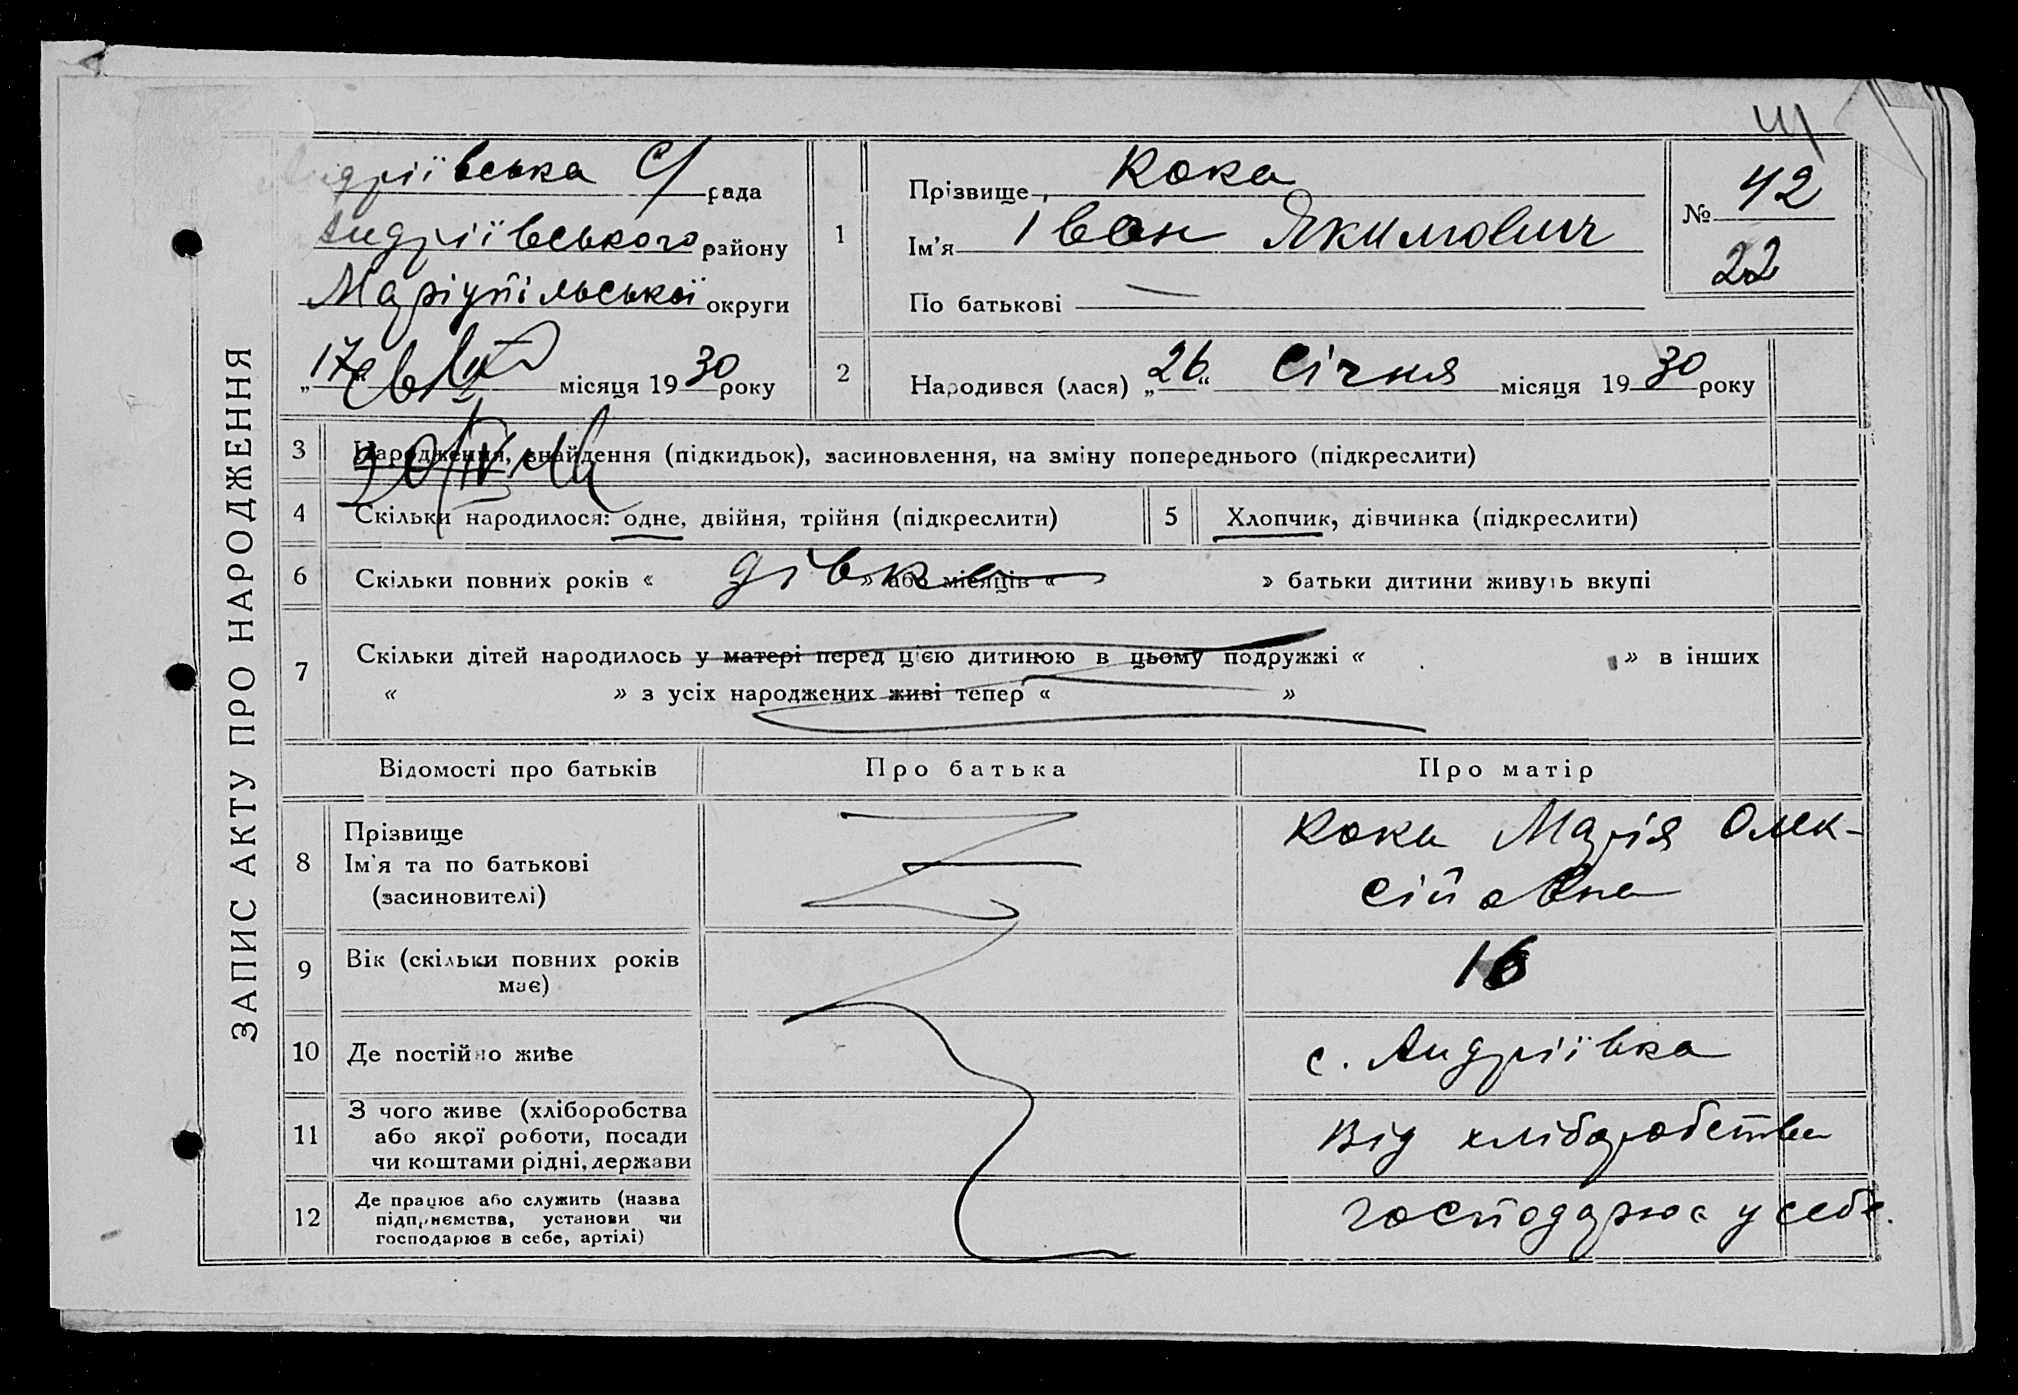 ЗАПИС АКТУ ПРО НАРОДЖЕННЯ
Андріївська С/рада
Андріївського району
Маріупільської округи
„17“ місяця 1930 року
1
Прізвище Кока
Ім'я Іван Якимович
По батькові —
№ 42
22
2
Народився (лася) „26“ Січня місяця 1930 року
3 Народження, знайдення (підкидьок), засиновлення, на зміну попереднього (підкреслити)
4 Скільки народилося: одне, двійня, трійня (підкреслити)
5 Хлопчик, дівчинка (підкреслити)
6 Скільки повних років « дівка » або місяців « » батьки дитини живуть вкупі
7 Скільки дітей народилось у матері перед цією дитиною в цьому подружжі « » в інших
« » з усіх народжених живі тепер « »
Відомості про батьків Про батька Про матір
8 Прізвище
Ім'я та по батькові
(засиновителі)
Кока Марія Олек-
сійовна
9 Вік (скільки повних років
має)
16
10 Де постійно живе
с. Андріївка
11 З чого живе (хліборобства
або якої роботи, посади
чи коштами рідні, держави
Від хліборобства
12 Де працює або служить (назва
підприємства, установи чи
господарює в себе, артілі)
господарює у себе.